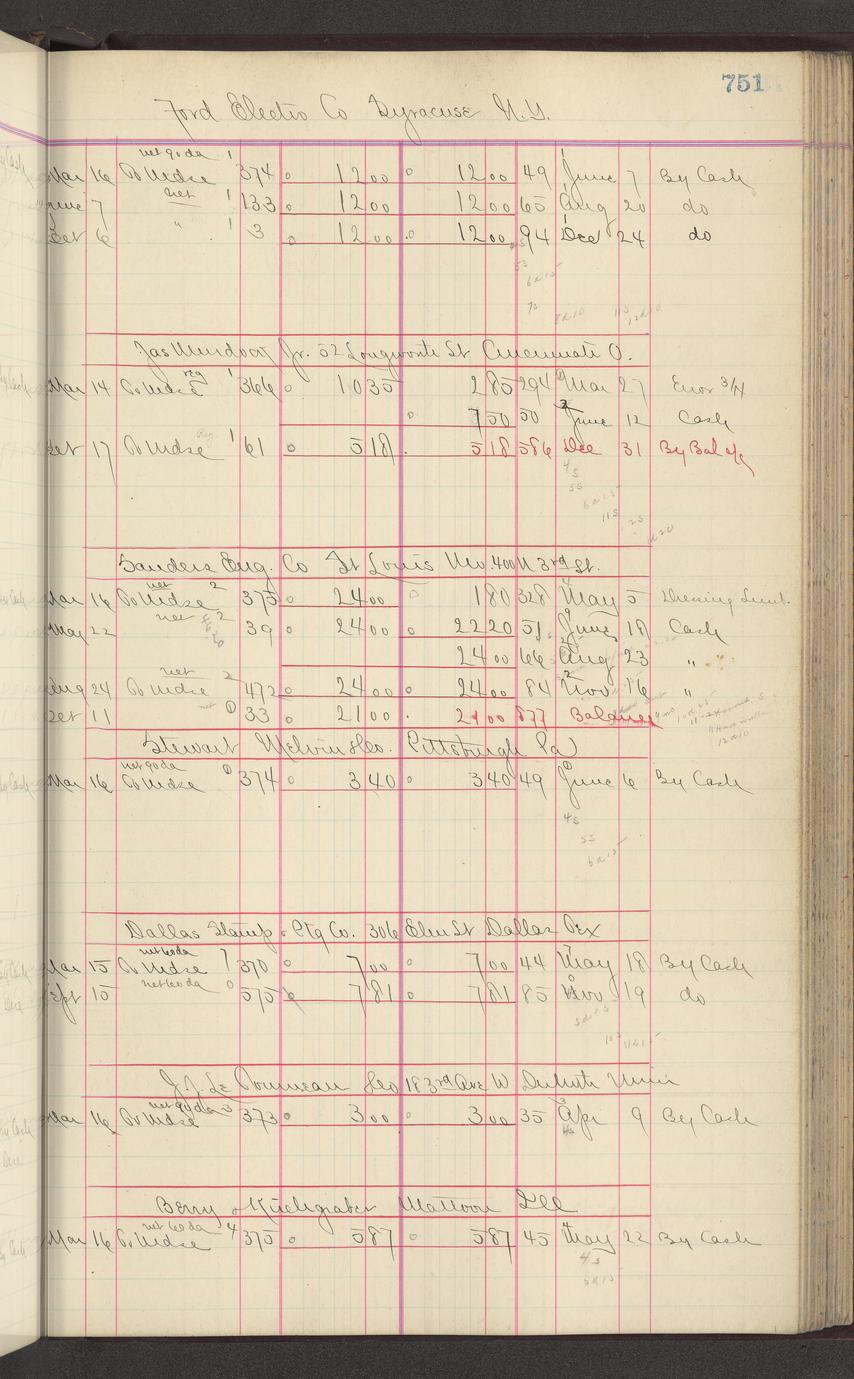 751
Ford Electro Co Syracuse N.Y.
net 90 da 1
Mar 16 To Mdse 374 12 00 12 00 49 June 7 By Cash
net 1
June 7 133 12 00 12 00 65 Aug 20 do
Oct 6 " 1 3 12 00 12 00 94 Dec 24 do
Jas Murdock Jr. 52 Longworth St Cincinnati O.
reg 1
Mar 14 To Mdse 366 10 35 2 85 294 Mar 27 Error 3/14
7 50 50 June 12 Cash
Oct 17 To Mdse 1 61 5 18 5 18 586 Dec 31 By Bal
Sanders Eng. Co St Louis Mo. 400 N 3rd St.
net 2
Mar 16 To Mdse 375 24 00 1 80 328 May 5
May 22 net 2 39 24 00 22 20 51 June 18 Cash
24 00 66 Aug 23 "
net 2
Aug 24 To Mdse 472 24 00 24 00 84 Nov 16 "
Oct 11 net 33 21 00 21 00 877 Balance
Stewart Melvin & Co. Pittsburgh Pa
net 90 da
Mar 16 To Mdse 374 3 40 3 40 49 June 6 By Cash
4s
5s
6 a 15
Dallas Stamp & Ptg Co. 306 Elm St Dallas Tex
net 60 da 7
Mar 15 To Mdse 370 7 00 7 00 44 May 18 By Cash
net 60 da 0
Sept 15 575 7 81 7 81 85 Nov 19 do
J.J. Le Tourneau & Co 18 3rd Ave W Duluth Minn
net 90 da 3
Mar 16 To Mdse 373 3 00 3 00 35 Apr 9 By Cash
4s
Berry & Mattoon Ill
net 60 da 4
Mar 16 To Mdse 375 5 87 5 87 45 May 22 By Cash
4s
5 a 15